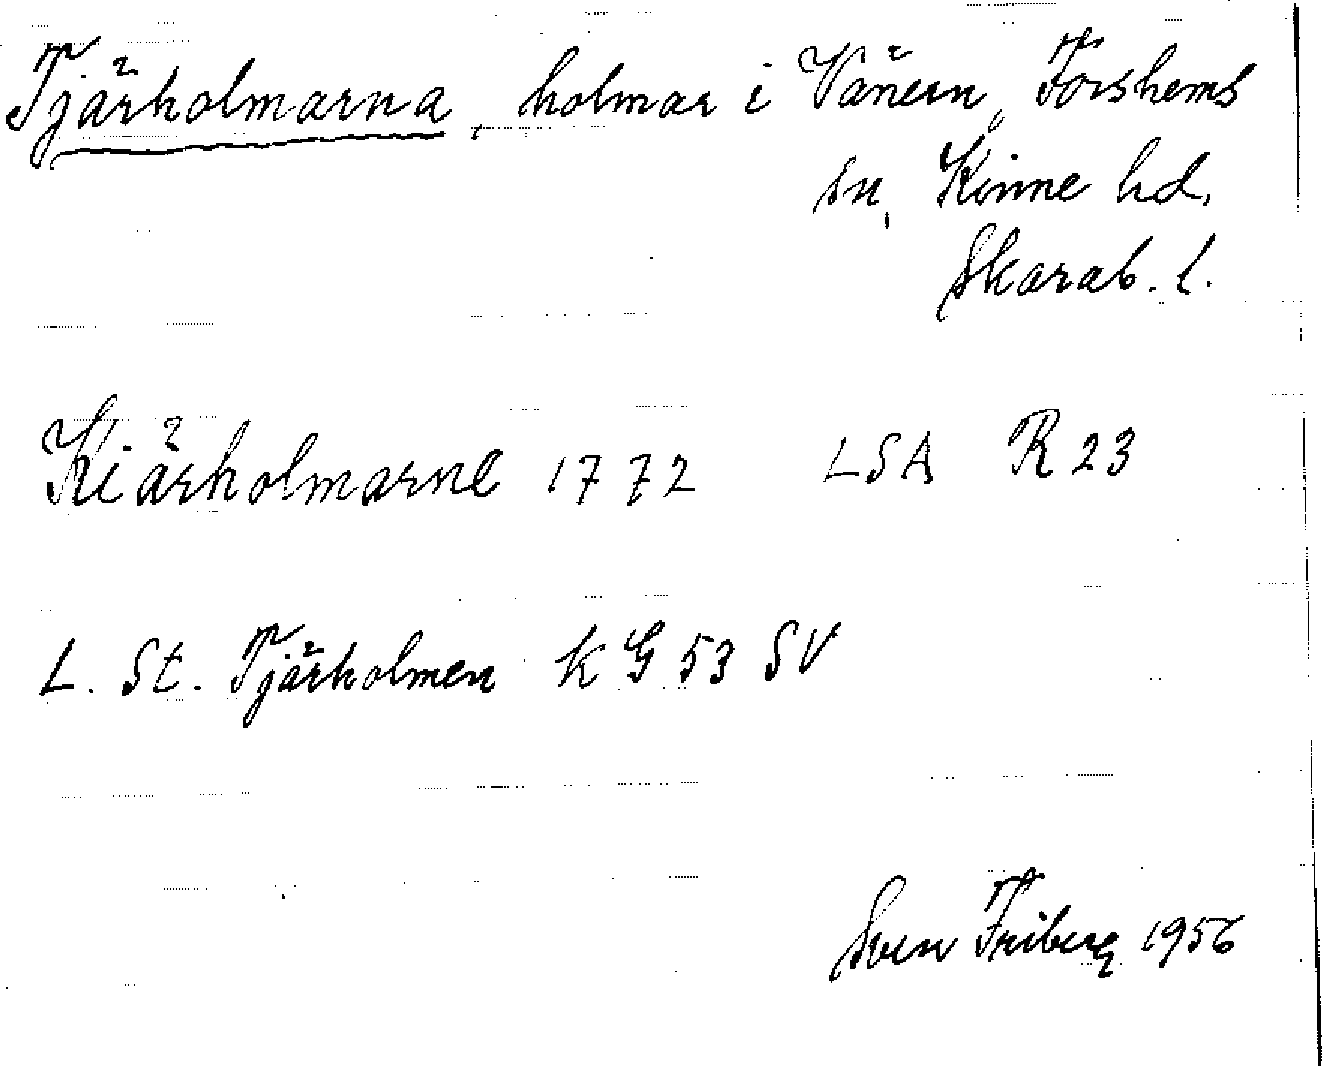 Tjärholmarna, holmar i Vänern, Forshems
sn, Kinne hd,
Skarab. l.
Kiärholmarne 1772 LSA R 23
L. St. Tjärholmen K G 53 SV
Sven Friberg 1956